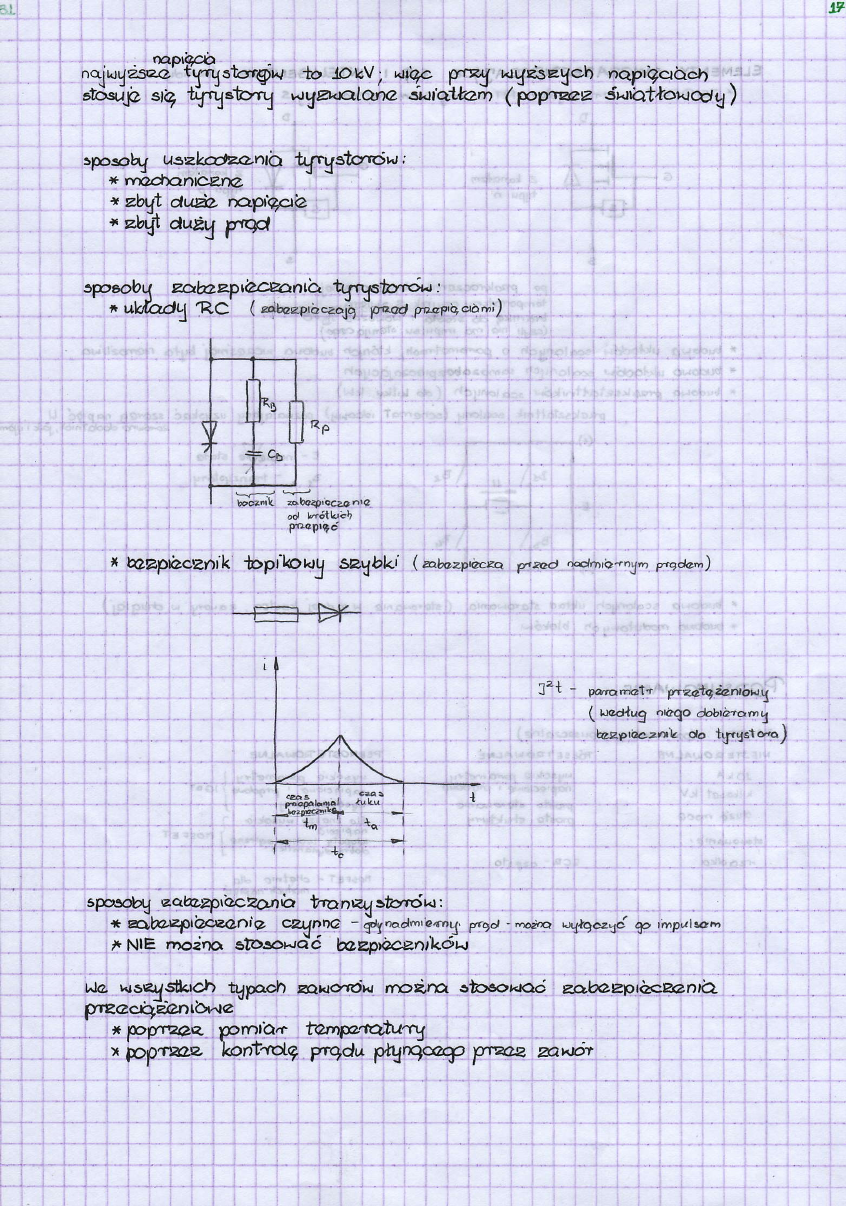 17
napięcia
najwyższe tyrystorów to 10kV; więc przy wyższych napięciach
stosuje się tyrystory wyzwalane światłem (poprzez światłowody)
sposoby uszkodzenia tyrystorów:
* mechaniczne
* zbyt duże napięcie
* zbyt duży prąd
sposoby zabezpieczania tyrystorów:
* układy RC (zabezpieczają przed przepięciami)
RB
Rp
CB
bocznik
zabezpieczenie
od krótkich
przepięć
* bezpiecznik topikowy szybki (zabezpiecza przed nadmiernym prądem)
i
J²t - parametr przetężeniowy
(według niego dobieramy
bezpiecznik do tyrystora)
t
czas
przepalania
bezpiecznika
czas
łuku
tm
ta
tc
sposoby zabezpieczania tranzystorów:
* zabezpieczenie czynne - gdy nadmierny prąd - można wyłączyć go impulsem
* NIE można stosować bezpieczników
We wszystkich typach zaworów można stosować zabezpieczenia
przeciążeniowe
* poprzez pomiar temperatury
* poprzez kontrolę prądu płynącego przez zawór